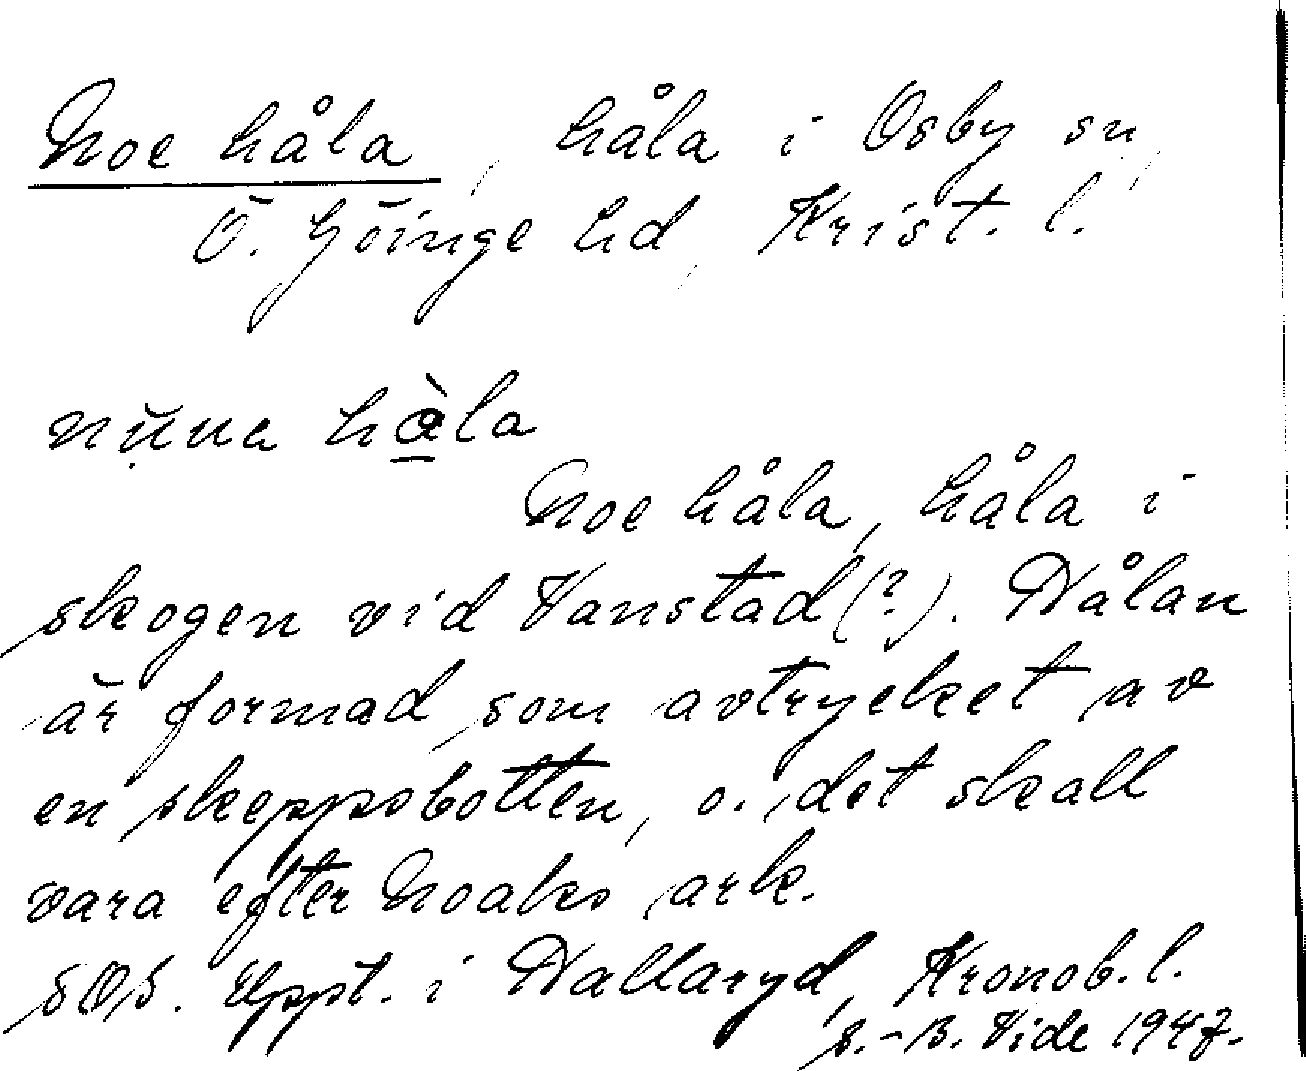 Noe håla, håla i Osby sn,
Ö. Göinge hd, Krist. l.
håla
Noe håla, håla i
skogen vid Vanstad(?). Hålan
är formad som avtrycket av
en skeppsbotten, o. det skall
vara efter Noaks ark.
SOS. Uppt. i Hallaryd, Kronob. l.
S.-B. Vide 1947.